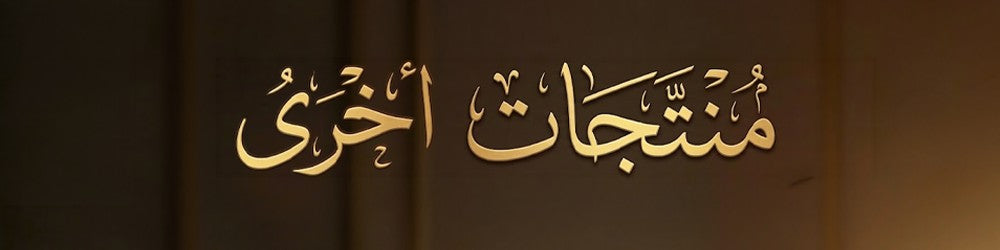 مُنْتَّجَات أخْرَىُ